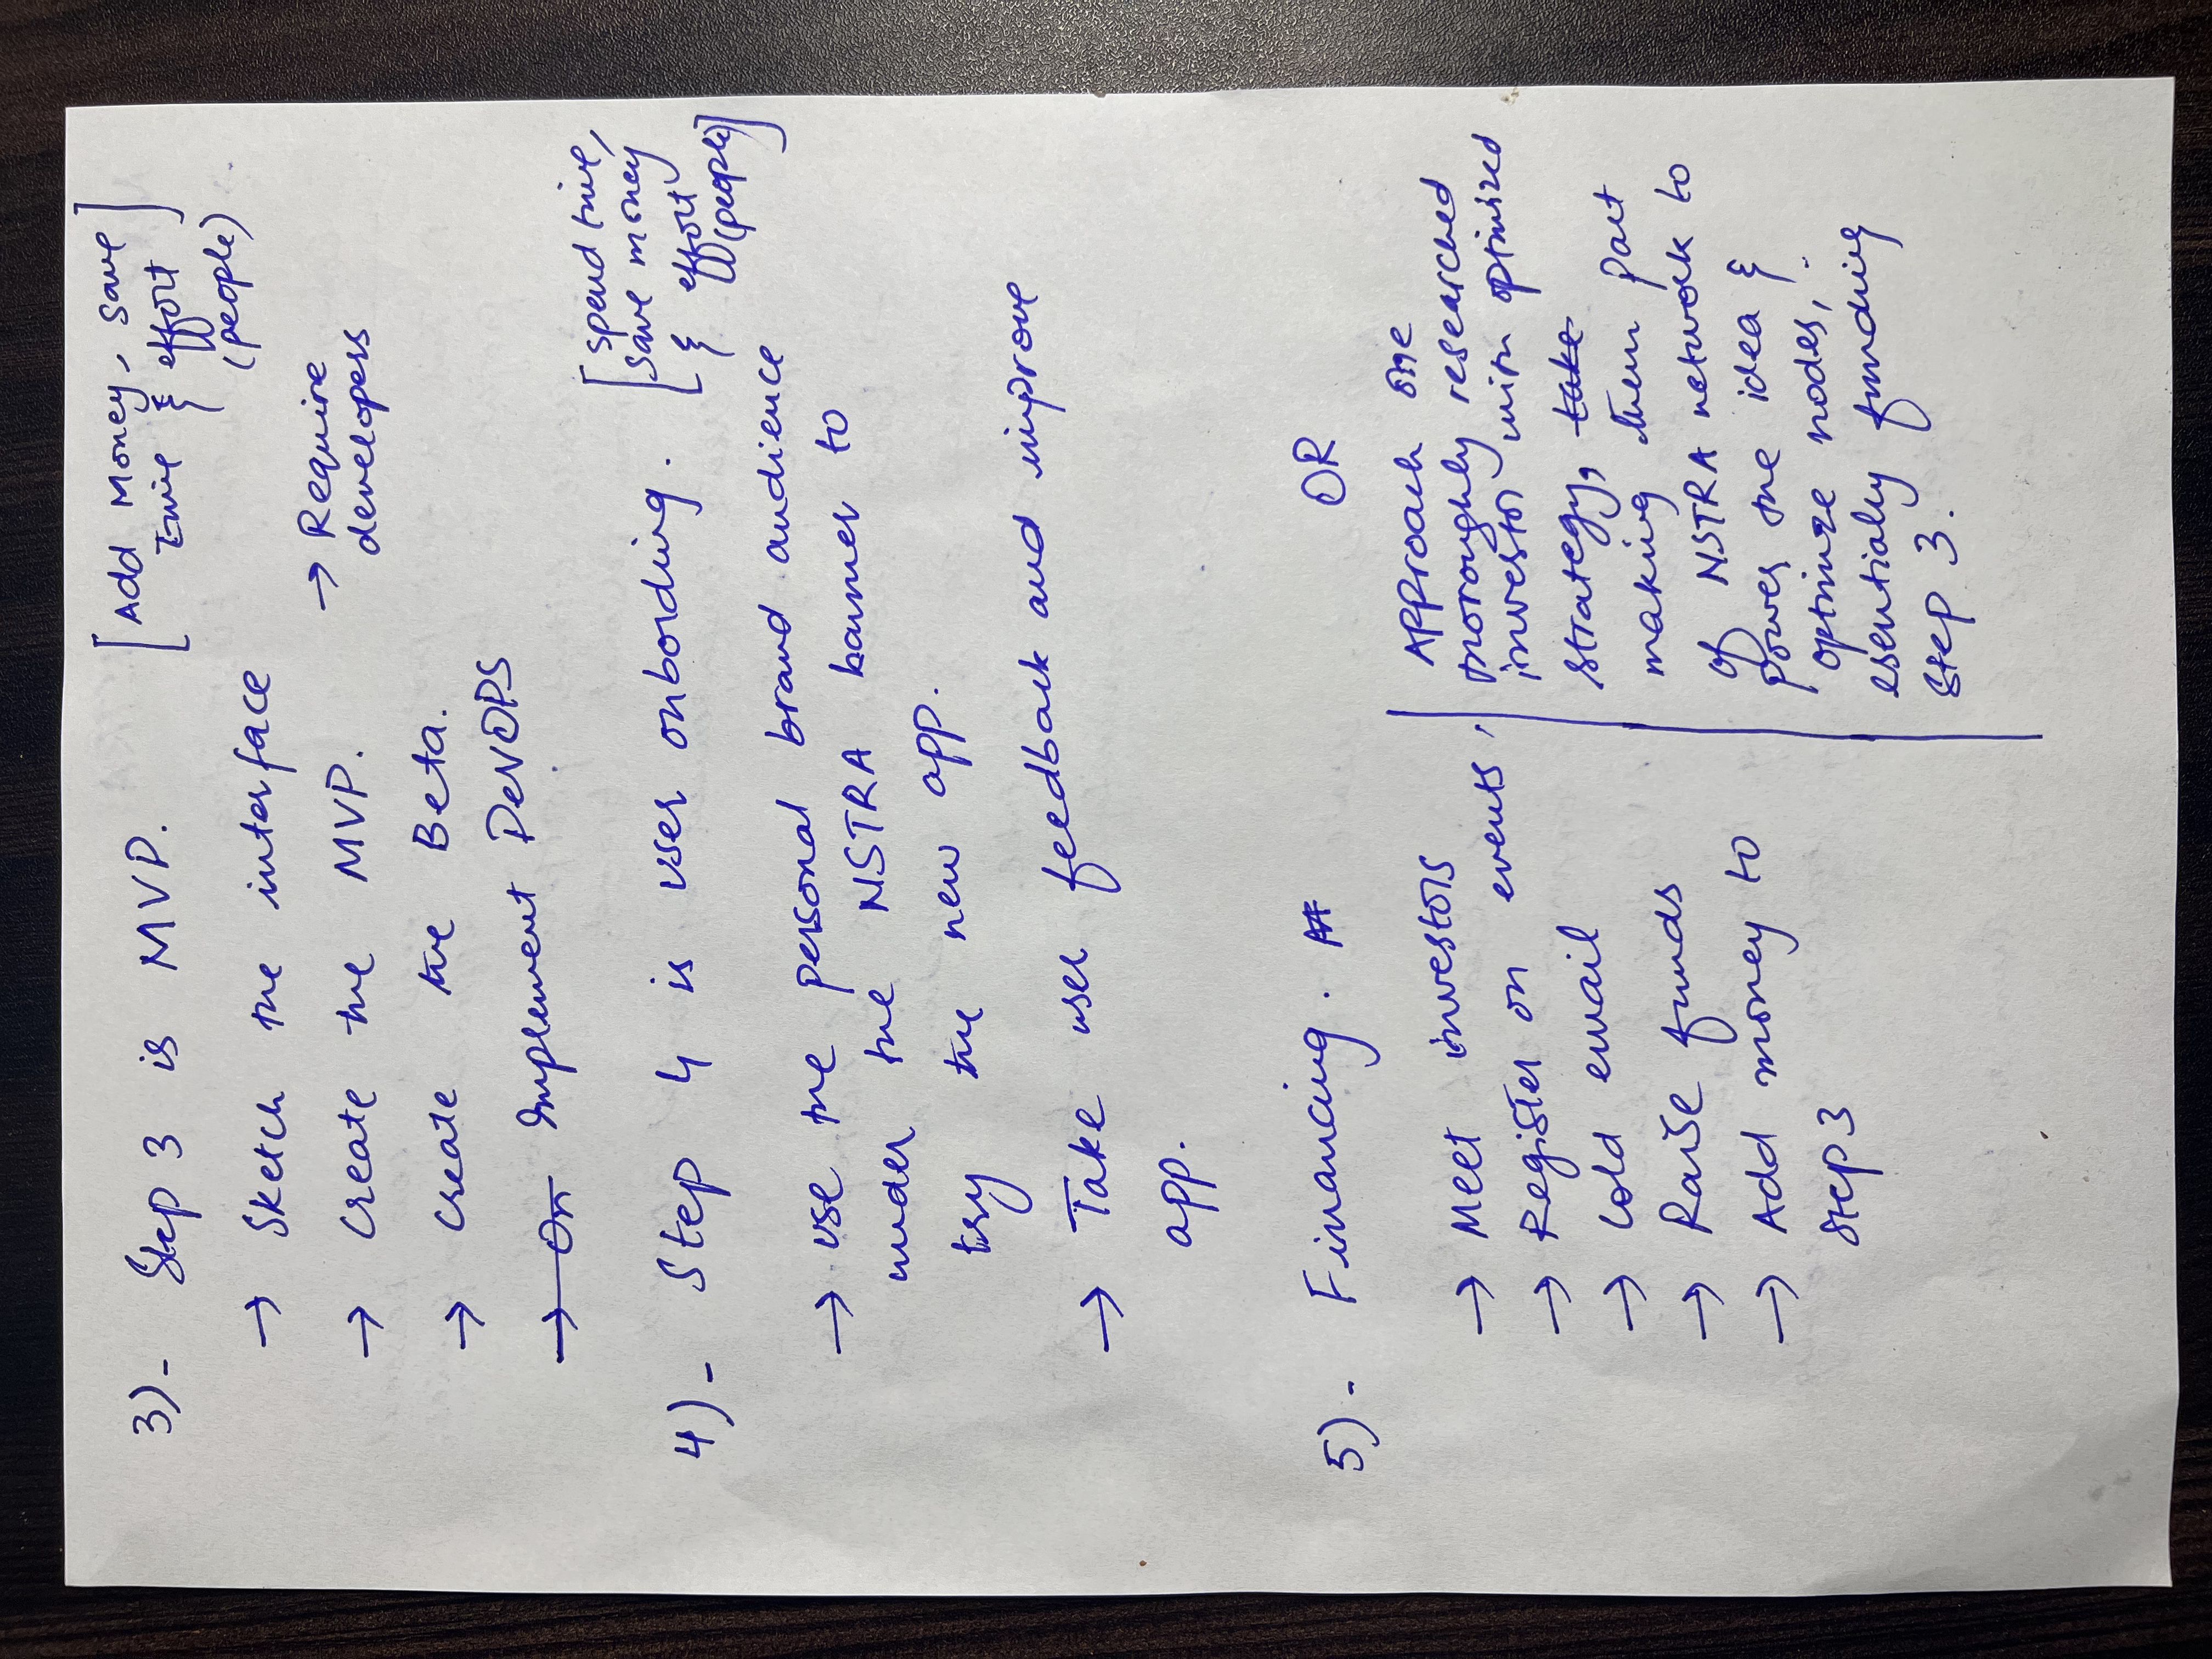 3)- Step 3 is MVP. [Add Money, save
time & effort]
(people)
→ Sketch the interface
→ Require
developers
→ Create the MVP.
→ Create the Beta.
→ On Implement DevOPS
4)- Step 4 is user onbording. [spend time,
save money
& effort
(people)]
→ use the personal brand audience
under the NSTRA banner to
try the new app.
→ Take user feedback and improve
app.
5)- Financing.
→ Meet investors
→ Register on events,
→ Cold email
→ Raise funds
→ Add money to
step 3
OR
Approach one
thoroughly researched
investor with optimized
strategy, take
making them part
of NSTRA network to
power the idea &
optimize nodes,
esentially funding
Step 3.